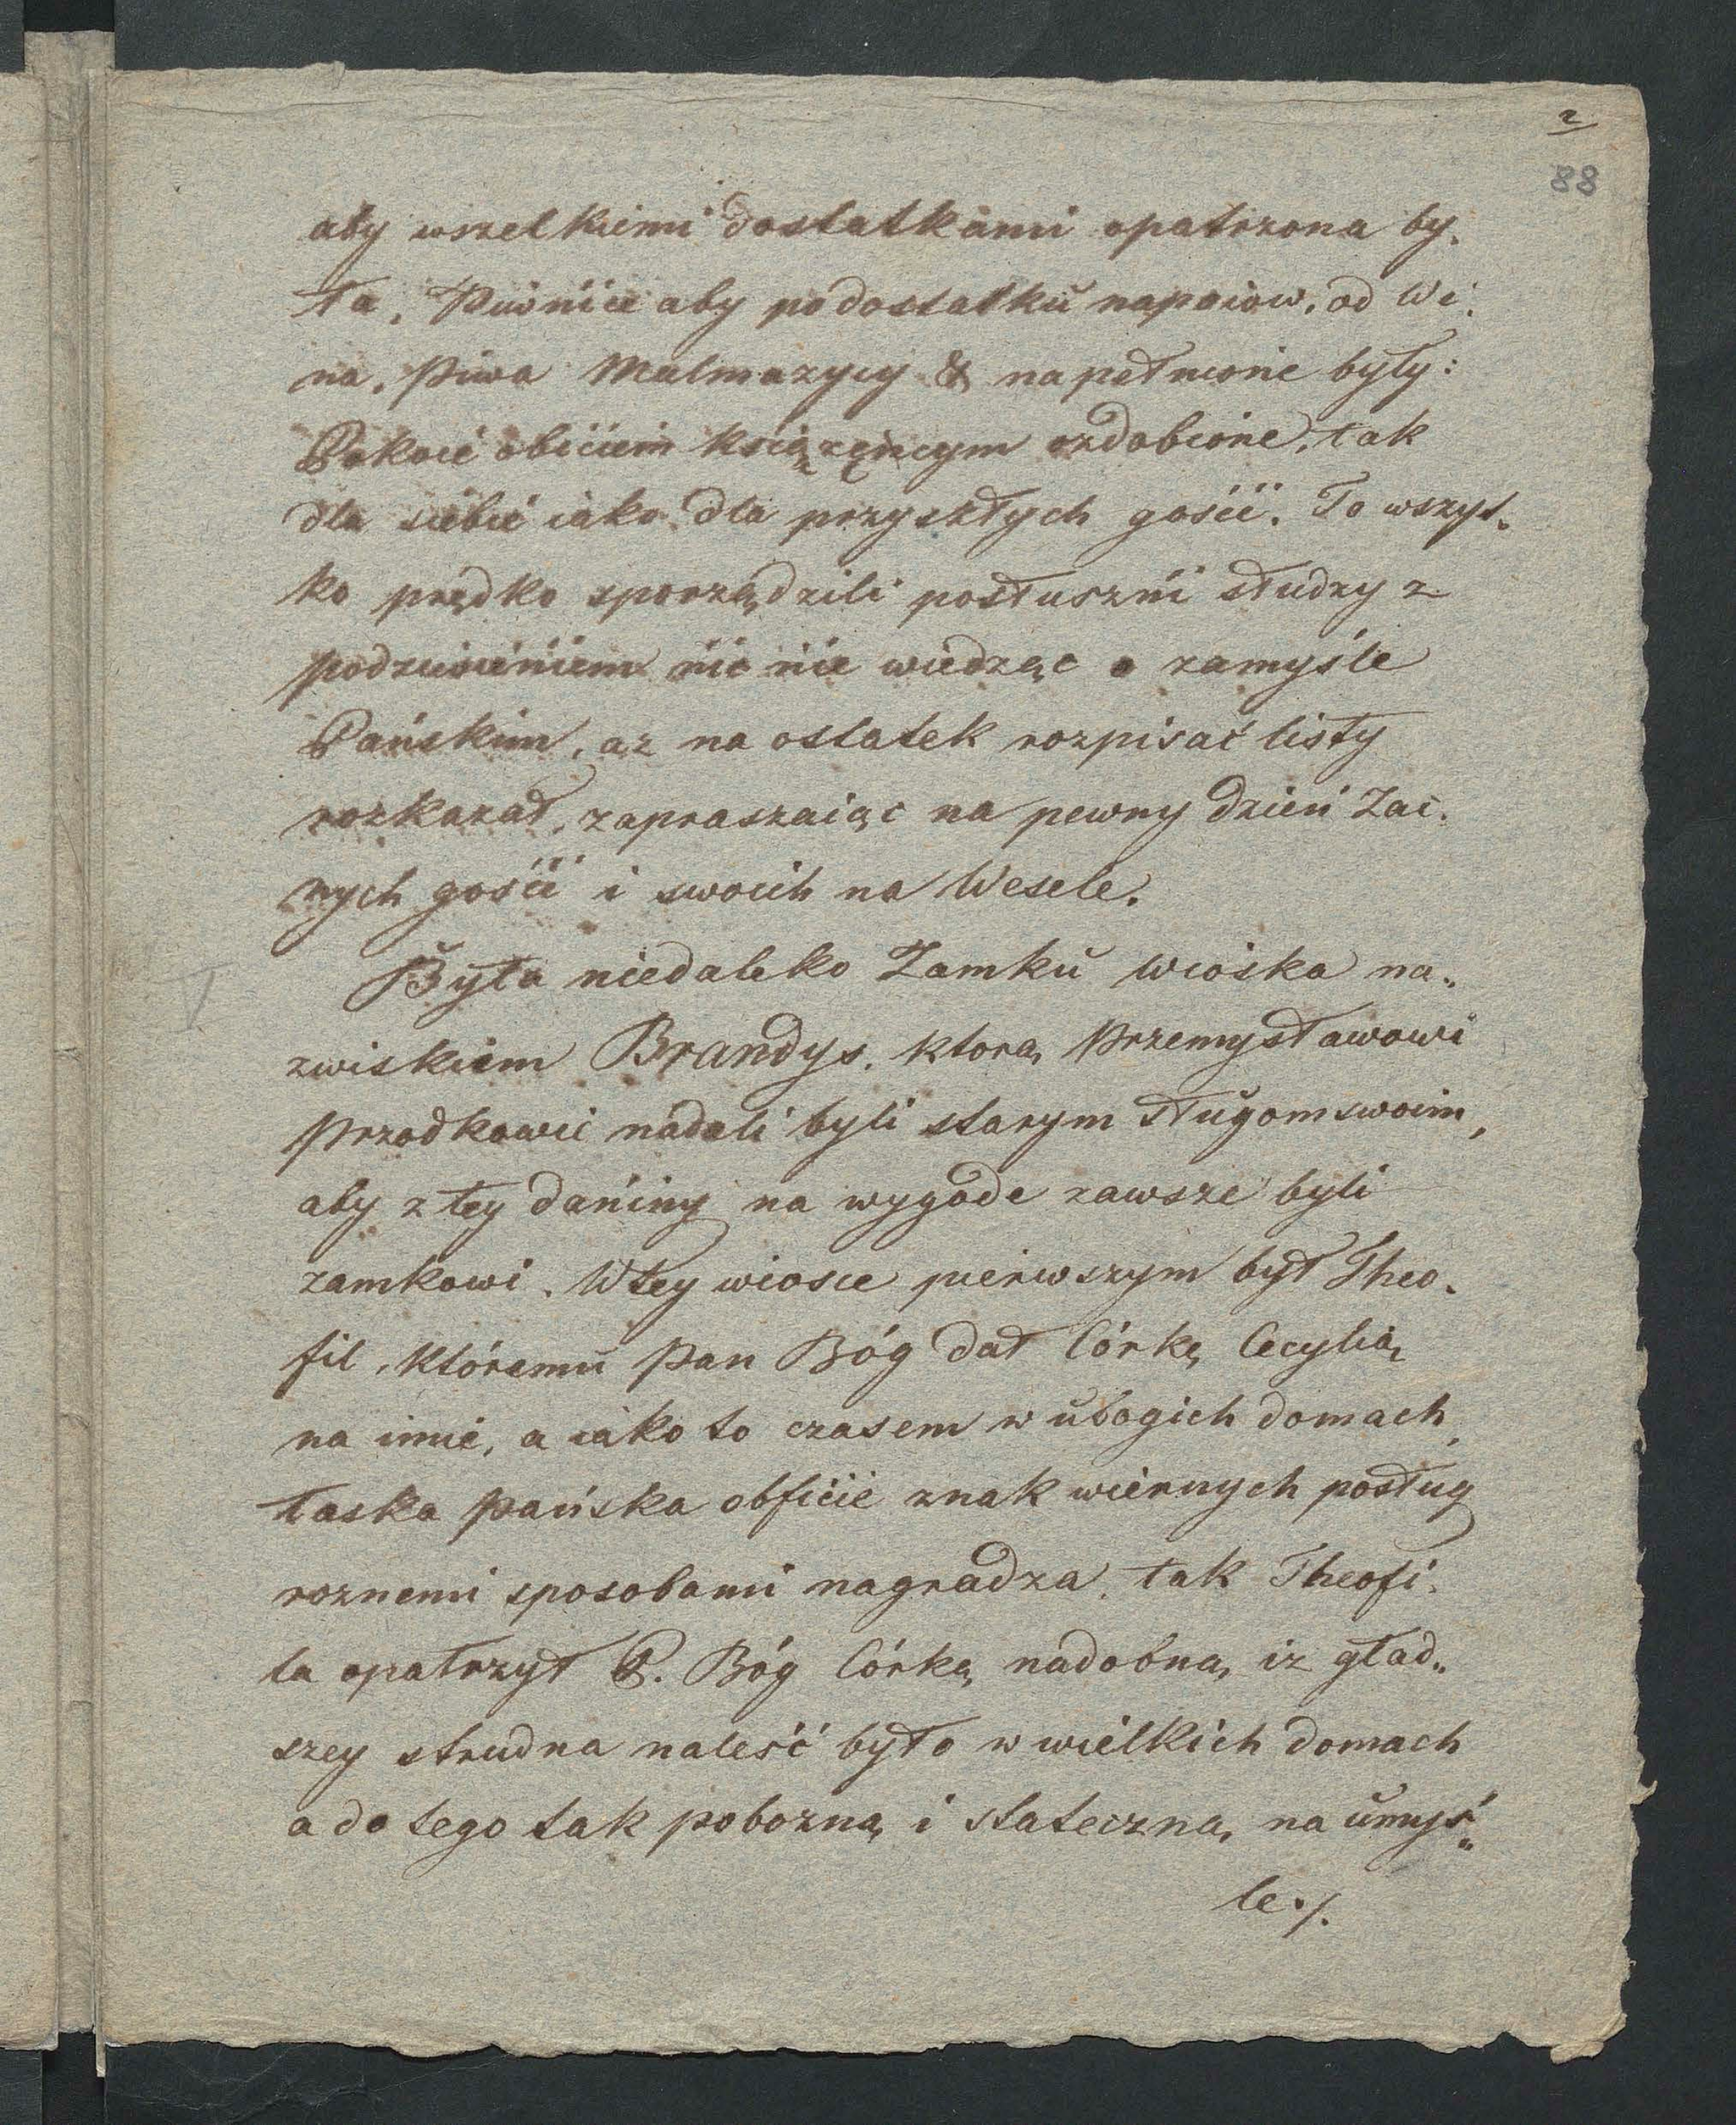 2
88
aby wszelkiemi dostatkami opatrzona by.
ła, Piwnice aby podostatku napoiow, od Wi.
na, Piwa Malmazycy & napełnione były:
Pokoie obiciem książęncym ozdobione, tak
dla siebie iako dla przyszłych gości. To wszys.
ko prędko sporządzili posłuszni słudzy z
podziwieniem nic nie wiedząc o zamyśle
Pańskim, az na ostatek rozpisać listy
rozkazał, zapraszaiąc na pewny dzień Zac.
nych gości i swoich na Wesele.
Była niedaleko Zamku wioska na„
zwiskiem Brandys, ktorą Przemysławowi
Przodkowie nadali byli starym sługom swoim,
aby z tey daniny na wygode zawsze byli
zamkowi. W tey wiosce pierwszym był Theo.
fil, któremu Pan Bóg dał Córkę Cecylią
na imie, a iako to czasem w ubogich domach,
łaska Pańska obficie znak wiernych posług
roznemi sposobami nagradza, tak Theofi.
la opatrzył P. Bóg Córką nadobną, iz gład„
szey strudna naleść było w wielkich domach
a do tego tak pobozną i stateczną, na umyś„
le./.